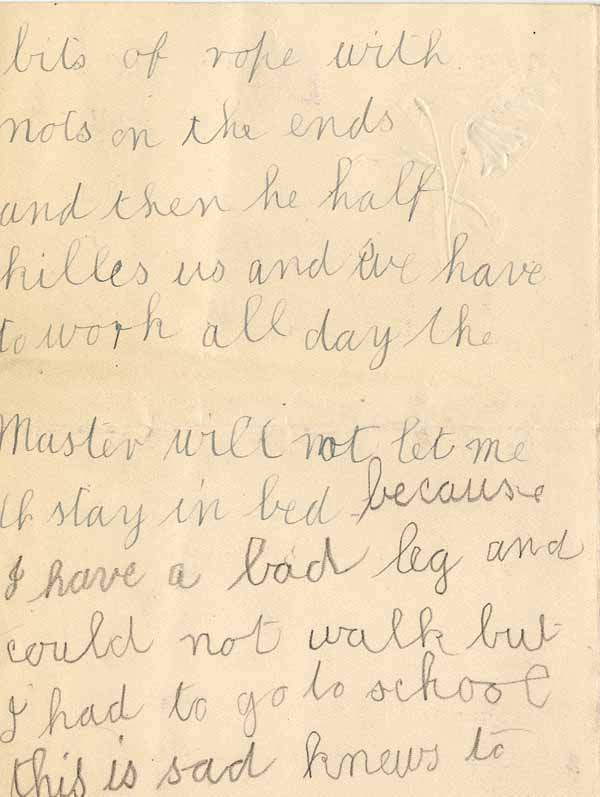 bits of rope with
nots on the ends
and then he half
killes us and we have
to work all day the
Master will not let me
stay in bed because
I have a bad leg and
could not walk but
I had to go to school
this is sad knews to